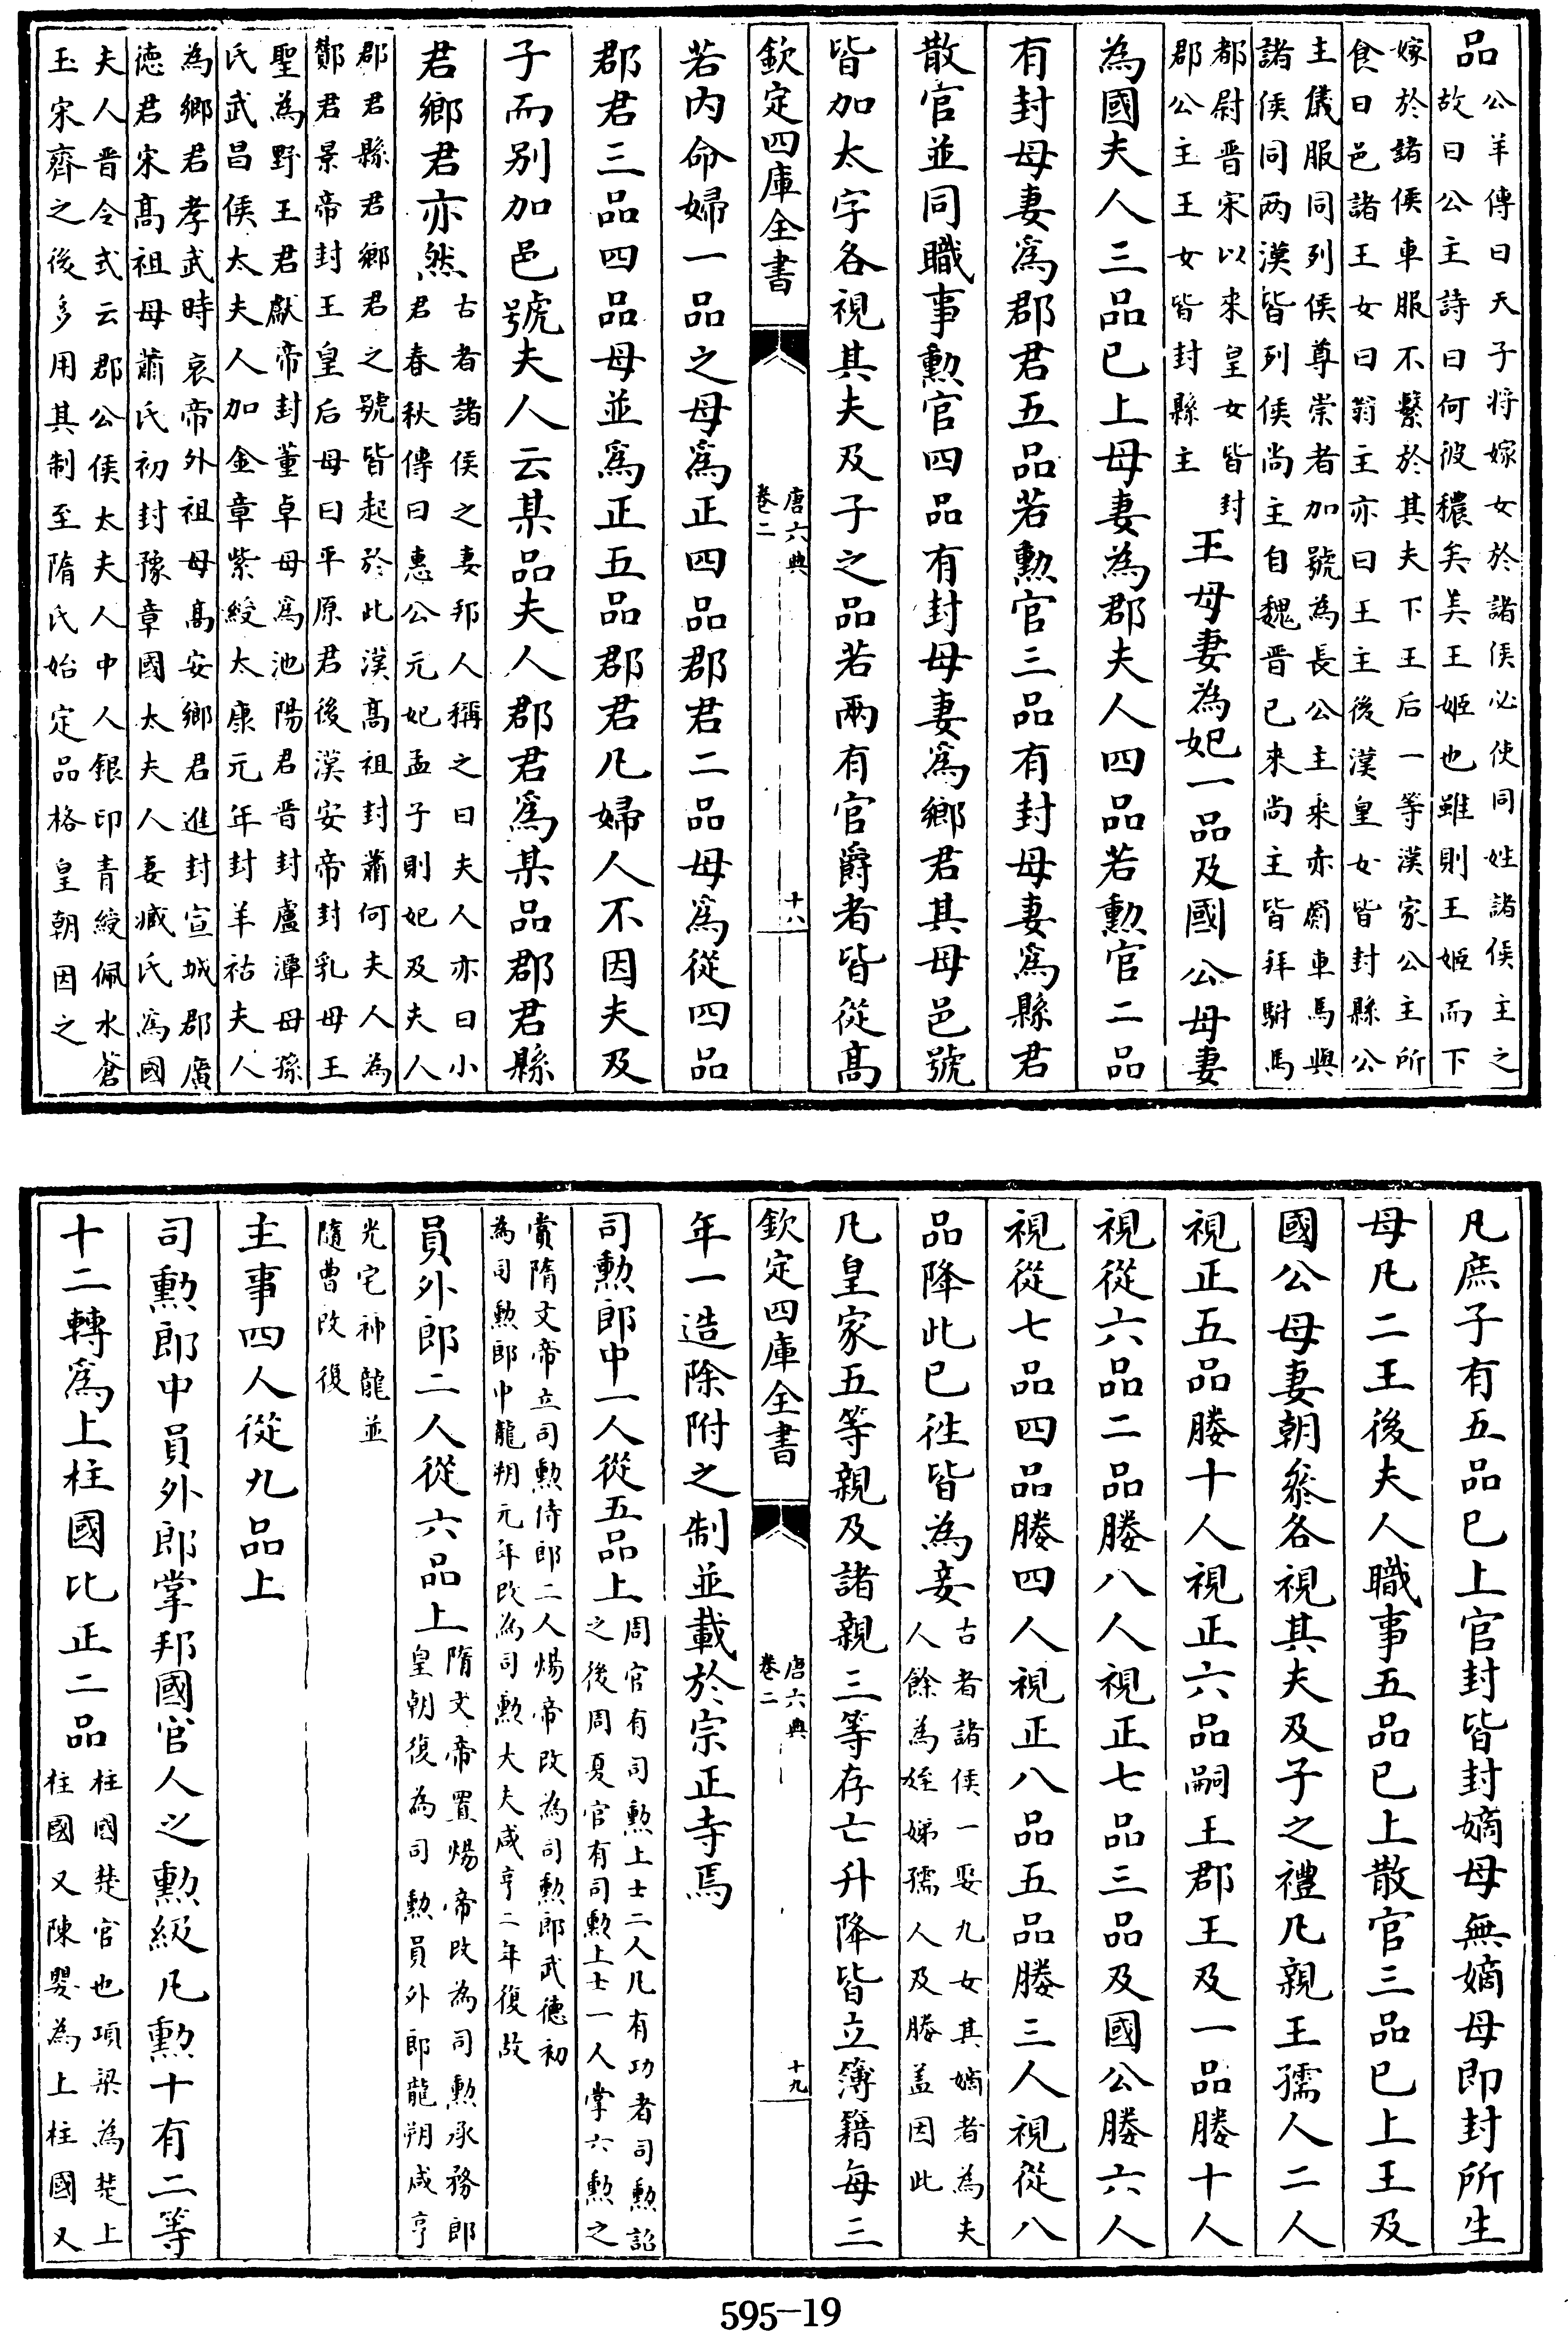 品公羊傳曰天子將嫁女於諸侯必使同姓諸侯主之
故曰公主詩曰何彼穠矣美王姬也雖則王姬而下
嫁於諸侯車服不繫於其夫下王后一等漢家公主所
食曰邑諸王女曰翁主亦曰王主後漢皇女皆封縣公
主儀服同列侯尊崇者加號為長公主來亦爾車馬與
諸侯同兩漢皆列侯尚主自魏晋已來尚主皆拜駙馬
都尉晋宋以來皇女皆封
郡公主王女皆封縣主
王母妻為妃一品及國公母妻
為國夫人三品已上母妻為郡夫人四品若勲官二品
有封母妻爲郡君五品若勲官三品有封母妻爲縣君
散官並同職事勲官四品有封母妻爲鄉君其母邑號
皆加太字各視其夫及子之品若兩有官爵者皆從髙
欽定四庫全書
唐六典
卷二
十八
若内命婦一品之母爲正四品郡君二品母爲從四品
郡君三品四品母並爲正五品郡君凡婦人不因夫及
子而别加邑號夫人云某品夫人郡君爲某品郡君縣
君鄉君亦然古者諸侯之妻邦人稱之曰夫人亦曰小
君春秋傳曰惠公元妃孟子則妃及夫人
郡君縣君鄉君之號皆起於此漢髙祖封蕭何夫人為
酇君景帝封王皇后母曰平原君後漢安帝封乳母王
聖為野王君獻帝封董卓母爲池陽君晋封盧潭母孫
氏武昌侯太夫人加金章紫綬太康元年封羊祜夫人
為鄉君孝武時哀帝外祖母髙安鄉君進封宣城郡廣
德君宋髙祖母蕭氏初封豫章國太夫人妻臧氏爲國
夫人晋令式云郡公侯太夫人中人銀印青綬佩水蒼
玉宋齊之後多用其制至隋氏始定品格皇朝因之
凡庶子有五品已上官封皆封嫡母無嫡母即封所生
母凡二王後夫人職事五品已上散官三品已上王及
國公母妻朝叅各視其夫及子之禮凡親王孺人二人
視正五品媵十人視正六品嗣王郡王及一品媵十人
視從六品二品媵八人視正七品三品及國公媵六人
視從七品四品媵四人視正八品五品媵三人視從八
品降此已往皆為妾古者諸侯一娶九女其嫡者為夫
人餘為姪娣孺人及媵盖因此
凡皇家五等親及諸親三等存亡升降皆立簿籍每三
欽定四庫全書
唐六典
卷二
十九
年一造除附之制並載於宗正寺焉
司勲郎中一人從五品上周官有司勲上士二人凡有功者司勲詔
之後周夏官有司勲上士一人掌六勲之
賞隋文帝立司勲侍郎二人煬帝改為司勲郎武德初
為司勲郎中龍朔元年改為司勲大夫咸亨二年復故
員外郎二人從六品上隋文帝置煬帝改為司勲承務郎
皇朝復為司勲員外郎龍朔咸亨
光宅神龍並
隨曹改復
主事四人從九品上
司勲郎中員外郎掌邦國官人之勲級凡勲十有二等
十二轉爲上柱國比正二品柱國楚官也項梁為楚上
柱國又陳嬰為上柱國又
595—19